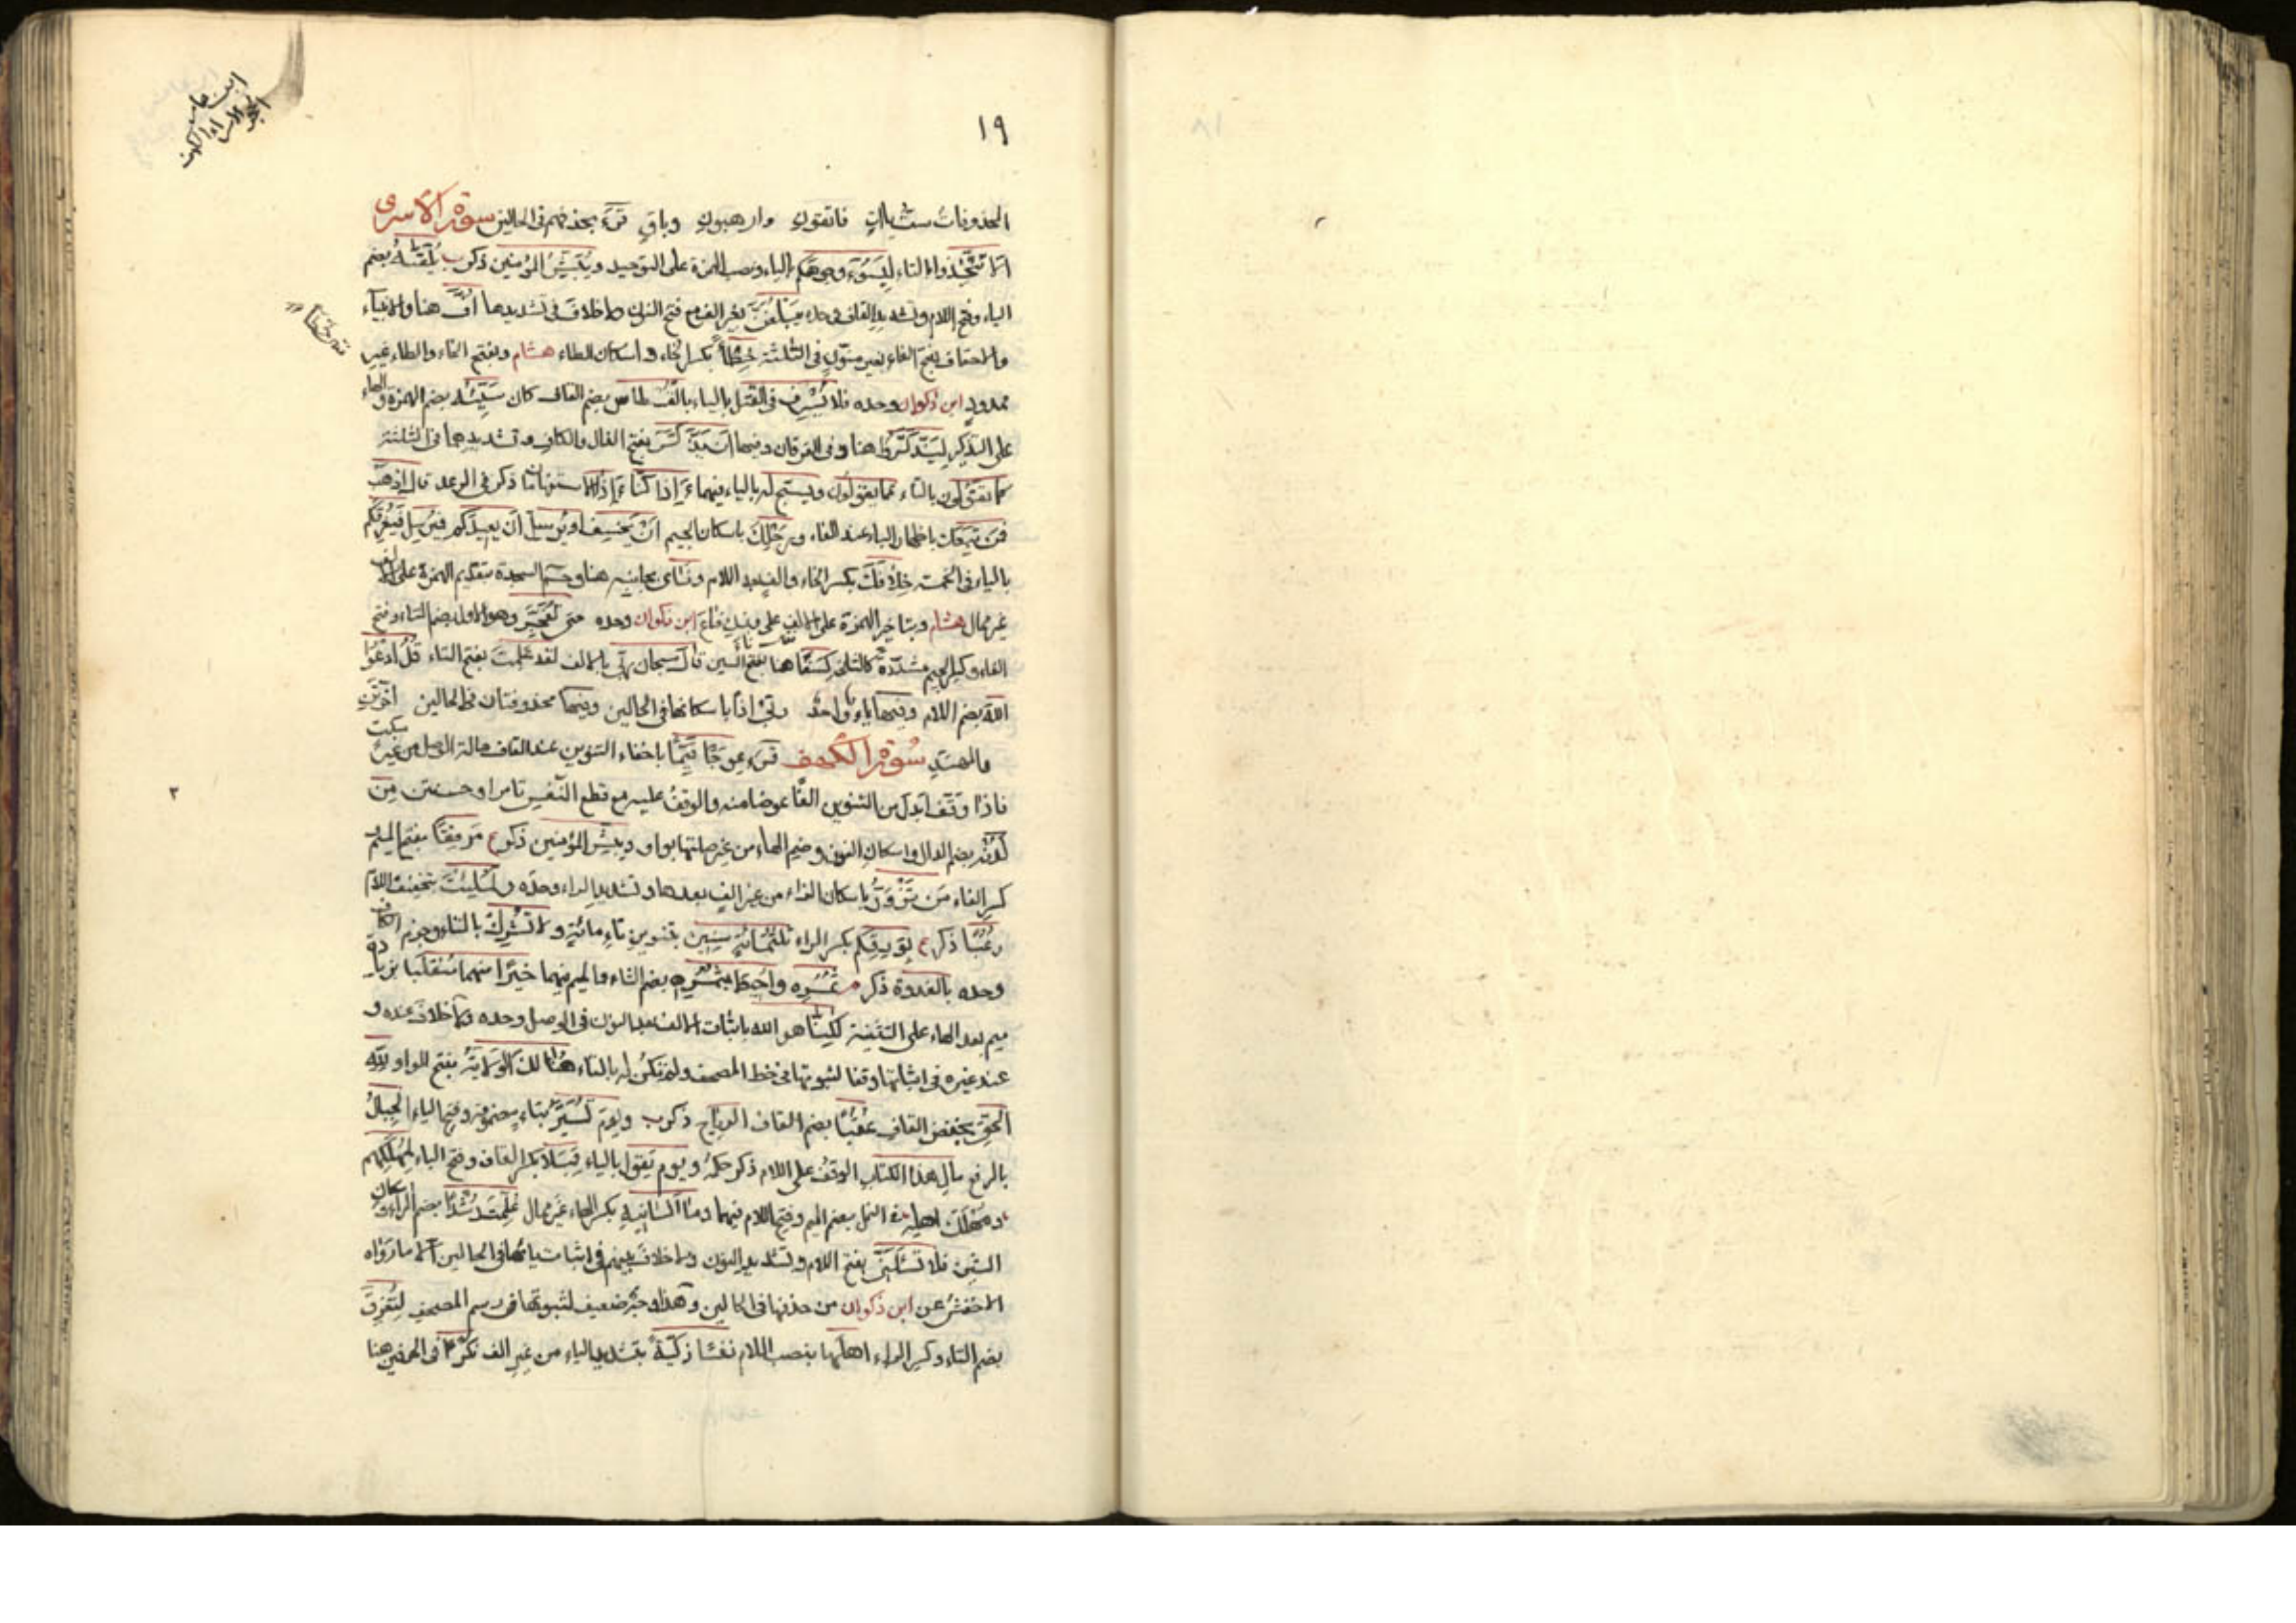 ١٩
ابن عامر
الاسراء والكهف
المحذوفات ست ياات فاتقون وارهبون وباق قرء بحذفهم فى الحالين سورة الاسرى
الا تتخذوا بالتاء ليسوء وجوهكم بالياء ونصب الهمزة على التوحيد ويبشر المؤمنين ذكر يلقٰه بضم
الياء وفتح اللام وتشديد القاف وحده يبلغن بغير الف مع فتح النون ولا خلاف فى تشديدها اف هنا والانبياء
والاحقاف بفتح الفاء بغير منون فى الثلثة خطأ بكسر الخاء واسكان الطاء هشام وبفتح الخاء والطاء غير
ممدود ابن ذكوان وحده فلا يسرف فى القتل بالياء بالقسطاس بضم القاف كان سيئه بضم الهمزة والهاء
على التذكير ليذكروا هنا وفى الفرقان وفيها ان يذكر بفتح الذال والكاف وتشديدهما فى الثلثة
كما تقولون بالتاء عما يقولون ويسبح له بالياء فيهما ءاذا كنا ءاذا الاستفهامان ذكر فى الرعد قال اذهب
فمن تبعك باظهار الباء عند الفاء ورجلك باسكان الجيم ان يخسف او يرسل ان يعيدكم فيرسل فيغرقكم
بالياء فى الخمسة خلافك بكسر الخاء والف بعد اللام ونأى بجانبه هنا وحم السجدة بتقديم الهمزة على الالف
غير ممال هشام وبتاخير الهمزة على الالف على وزن فاع ابن ذكوان وحده حتى تفجر وهو الاول بضم التاء وفتح
الفاء وكسر الجيم مشددة كالثانى كسفا هنا بفتح السين قال سبحان ربى بالالف لقد علمت بفتح التاء قل ادعوا
الله بضم اللام وفيها ياء واحدة ربى اذا باسكانها فى الحالين وفيها محذوفتان فى الحالين اخرتن
والمهتد سورة الكهف قرء عوجا قيما باخفاء التنوين عند القاف حالة الوصل من غير سكت
فاذا وقف ابدل من التنوين الفا عوضا منه والوقف عليه مع قطع النفس تام او حسن من
لدنه بضم الدال واسكان النون وضم الهاء من غير صلتها بواو ويبشر المؤمنين ذكر مرفقا بفتح الميم
كسر الفاء من تزور باسكان الزاء من غير الف بعدها وتشديد الراء وحده ولملئت بتخفيف اللام
رعبا ذكر بورقكم بكسر الراء ثلثمائة سنين بتنوين تاء مائة ولا تشرك بالتاء وجزم الكاف
وحده بالغدوة ذكر ثمره واحيط بثمره بضم الثاء والميم فيهما خيرا منهما منقلبا بزيادة
ميم بعد الهاء على التثنية لكنا هو الله باثبات الالف بعد النون فى الوصل وحده ولا خلاف عنده و
عند غيره فى اثباتها وقفا لثبوتها فى خط المصحف ولم تكن له بالتاء هنالك الولاية بفتح الواو لله
الحق بخفض القاف عقبا بضم القاف الرياح ذكر ويوم تسير بتاء مضمومة وفتح الياء الجبال
بالرفع مال هذا الكتاب الوقف على اللام ذكر حكمه ويوم يقول بالياء قبلا بكسر القاف وفتح الباء لمهلكهم
ومهلك اهله فى النمل بضم الميم وفتح اللام فيهما وما انسانيه بكسر الهاء غير ممال علمت رشدا بضم الراء واسكان
الشين فلا تسئلن بفتح اللام وتشديد النون ولا خلاف بينهم فى اثبات يائها فى الحالين الا ما رواه
الاخفش عن ابن ذكوان من حذفها فى الحالين وهذا وجه ضعيف لثبوتها فى رسم المصحف لتغرق
بضم التاء وكسر الراء اهلها بنصب اللام نفسا زكية بتشديد الياء من غير الف نكرا فى الحرفين هنا
٢